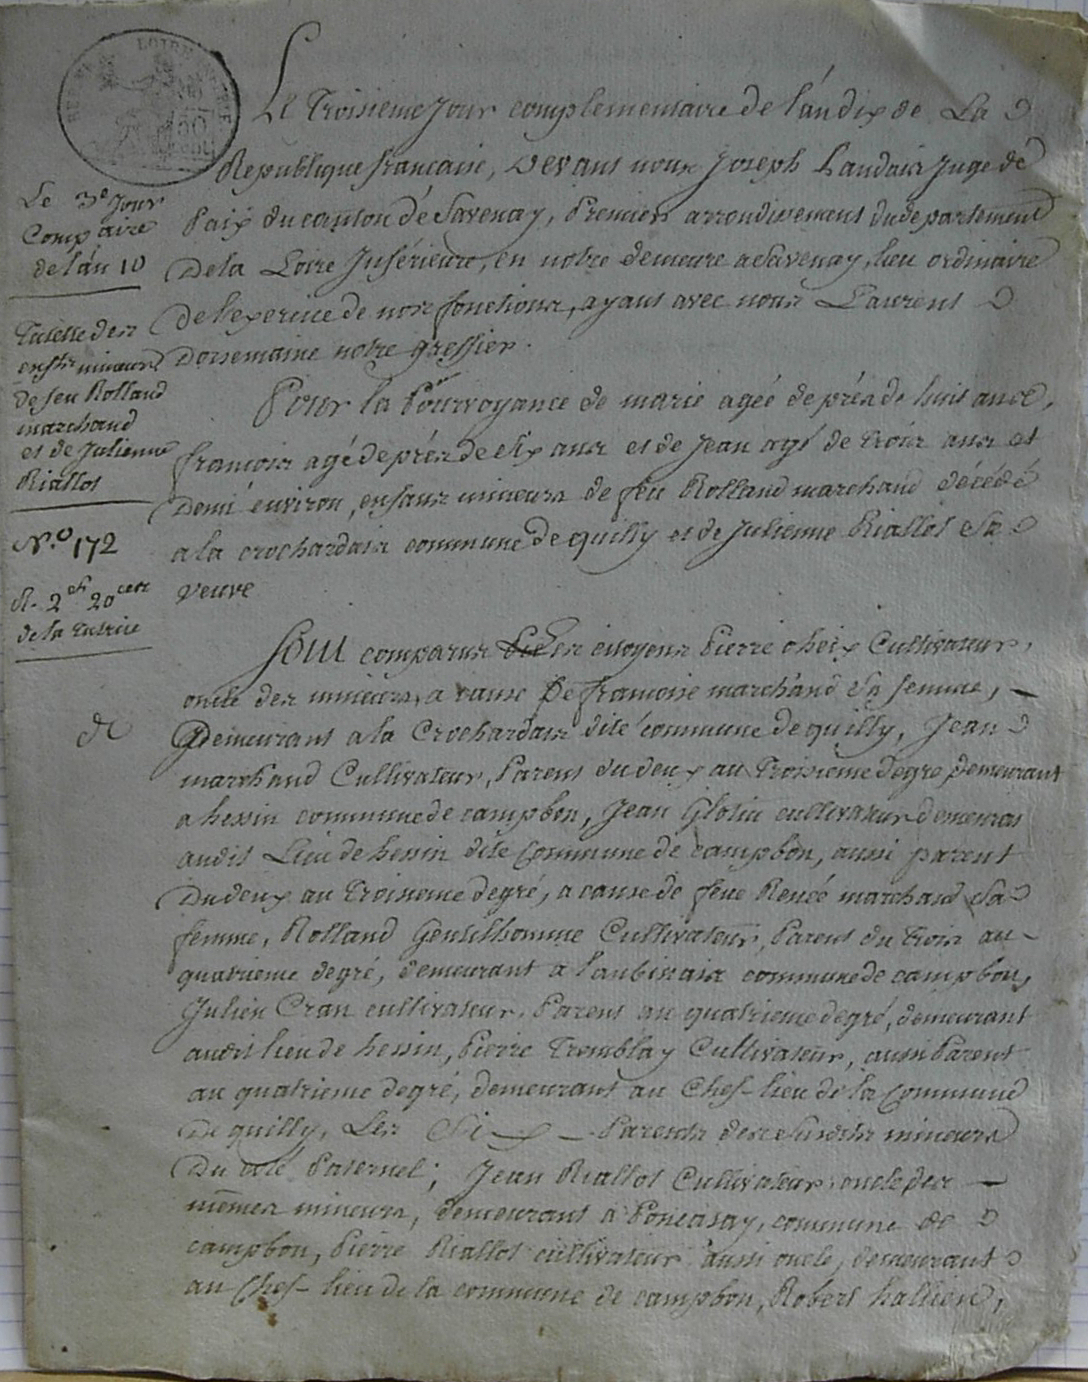 Le Troisieme Jour complementaire de l'an dix de La
Republique francaise, Devant nous Joseph Landais Juge de
Paix du canton de Savenay, Premier arrondissement du departement
De la Loire Inférieure, en notre demeure a Savenay, lieu ordinaire
De l'exercice de nos fonctions, ayant avec nous Laurent
Dorsemaine notre greffier.
Le 3e Jour
Compaire
de l'an 10
Tutelle des
enfts mineurs
de feu Rolland
marchand
et de Julienne
Riallot
N.o 172
R. 2 f 20 cen
de la tutrice
Pour la Pourvoyance de marie agée de près de huit ans,
francois agé de près de six ans et de Jean agé de trois ans et
Demi environ, enfans mineurs de feu Rolland marchand décédé
a la crochardais commune de quilly et de Julienne Riallot Sa
veuve
Sont comparus les citoyens Pierre oheix Cultivateur,
oncle des mineurs, a cause De francoise marchand Sa femme,
Demeurant a la Crochardais dite commune de quilly, Jean
marchand Cultivateur, Parent du deux au Troisieme degre demeurant
a hessin commune de campbon, Jean Glotin cultivateur demeurant
audit Lieu de hessin dite Commune de campbon, aussi parent
Du deux au Troisieme degré, a cause de feue Renée marchand Sa
femme, Rolland Gentilhomme Cultivateur, Parent du trois au
quatrieme degré, demeurant a l'aubinais commune de campbon,
Julien Cran cultivateur, Parent au quatrieme degré, demeurant
audit lieu de hessin, Pierre Tremblay Cultivateur, aussi Parent
au quatrieme degré, demeurant au Chef-lieu de la Commune
De quilly, Les Six Parents desdits mineurs
Du coté Paternel; Jean Riallot Cultivateur oncle des
mêmes mineurs, demeurant a Poncasay, commune de
campbon, Pierre Riallot cultivateur aussi oncle, demeurant
au Chef-lieu de la commune de campbon, Robert hallien,